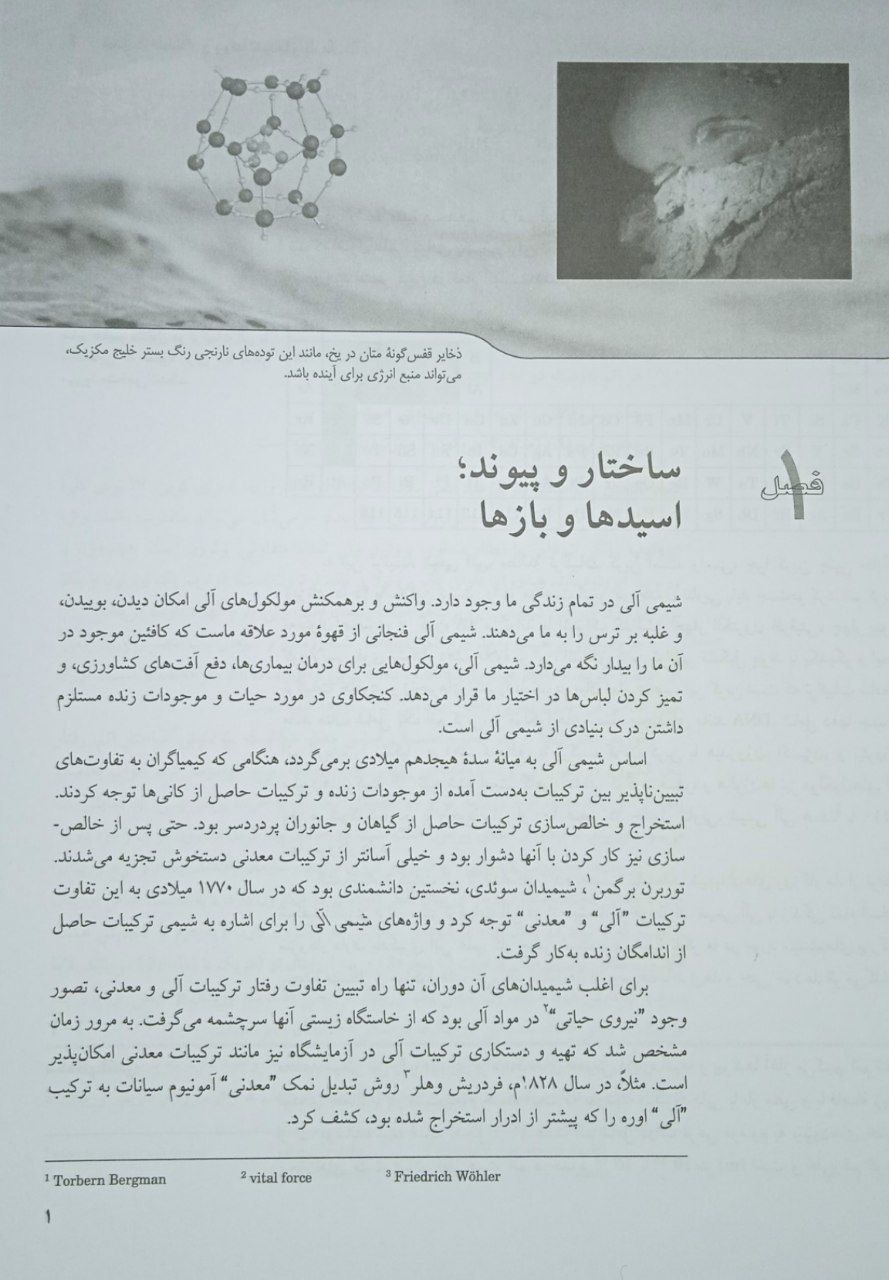 ذخایر قفس‌گونهٔ متان در یخ، مانند این توده‌های نارنجی رنگ بستر خلیج مکزیک،
می‌تواند منبع انرژی برای آینده باشد.
فصل ۱
ساختار و پیوند؛
اسیدها و بازها
شیمی آلی در تمام زندگی ما وجود دارد. واکنش و برهمکنش مولکول‌های آلی امکان دیدن، بوییدن،
و غلبه بر ترس را به ما می‌دهند. شیمی آلی فنجانی از قهوهٔ مورد علاقه ماست که کافئین موجود در
آن ما را بیدار نگه می‌دارد. شیمی آلی، مولکول‌هایی برای درمان بیماری‌ها، دفع آفت‌های کشاورزی، و
تمیز کردن لباس‌ها در اختیار ما قرار می‌دهد. کنجکاوی در مورد حیات و موجودات زنده مستلزم
داشتن درک بنیادی از شیمی آلی است.
اساس شیمی آلی به میانهٔ سدهٔ هیجدهم میلادی برمی‌گردد، هنگامی که کیمیاگران به تفاوت‌های
تبیین‌ناپذیر بین ترکیبات به‌دست آمده از موجودات زنده و ترکیبات حاصل از کانی‌ها توجه کردند.
استخراج و خالص‌سازی ترکیبات حاصل از گیاهان و جانوران پردردسر بود. حتی پس از خالص-
سازی نیز کار کردن با آنها دشوار بود و خیلی آسانتر از ترکیبات معدنی دستخوش تجزیه می‌شدند.
توربرن برگمن۱، شیمیدان سوئدی، نخستین دانشمندی بود که در سال ۱۷۷۰ میلادی به این تفاوت
ترکیبات ”آلی“ و ”معدنی“ توجه کرد و واژه‌های شیمی آلی را برای اشاره به شیمی ترکیبات حاصل
از اندامگان زنده به‌کار گرفت.
برای اغلب شیمیدان‌های آن دوران، تنها راه تبیین تفاوت رفتار ترکیبات آلی و معدنی، تصور
وجود ”نیروی حیاتی“۲ در مواد آلی بود که از خاستگاه زیستی آنها سرچشمه می‌گرفت. به مرور زمان
مشخص شد که تهیه و دستکاری ترکیبات آلی در آزمایشگاه نیز مانند ترکیبات معدنی امکان‌پذیر
است. مثلاً، در سال ۱۸۲۸م، فردریش وهلر۳ روش تبدیل نمک ”معدنی“ آمونیوم سیانات به ترکیب
”آلی“ اوره را که پیشتر از ادرار استخراج شده بود، کشف کرد.
1 Torbern Bergman 2 vital force 3 Friedrich Wöhler
۱